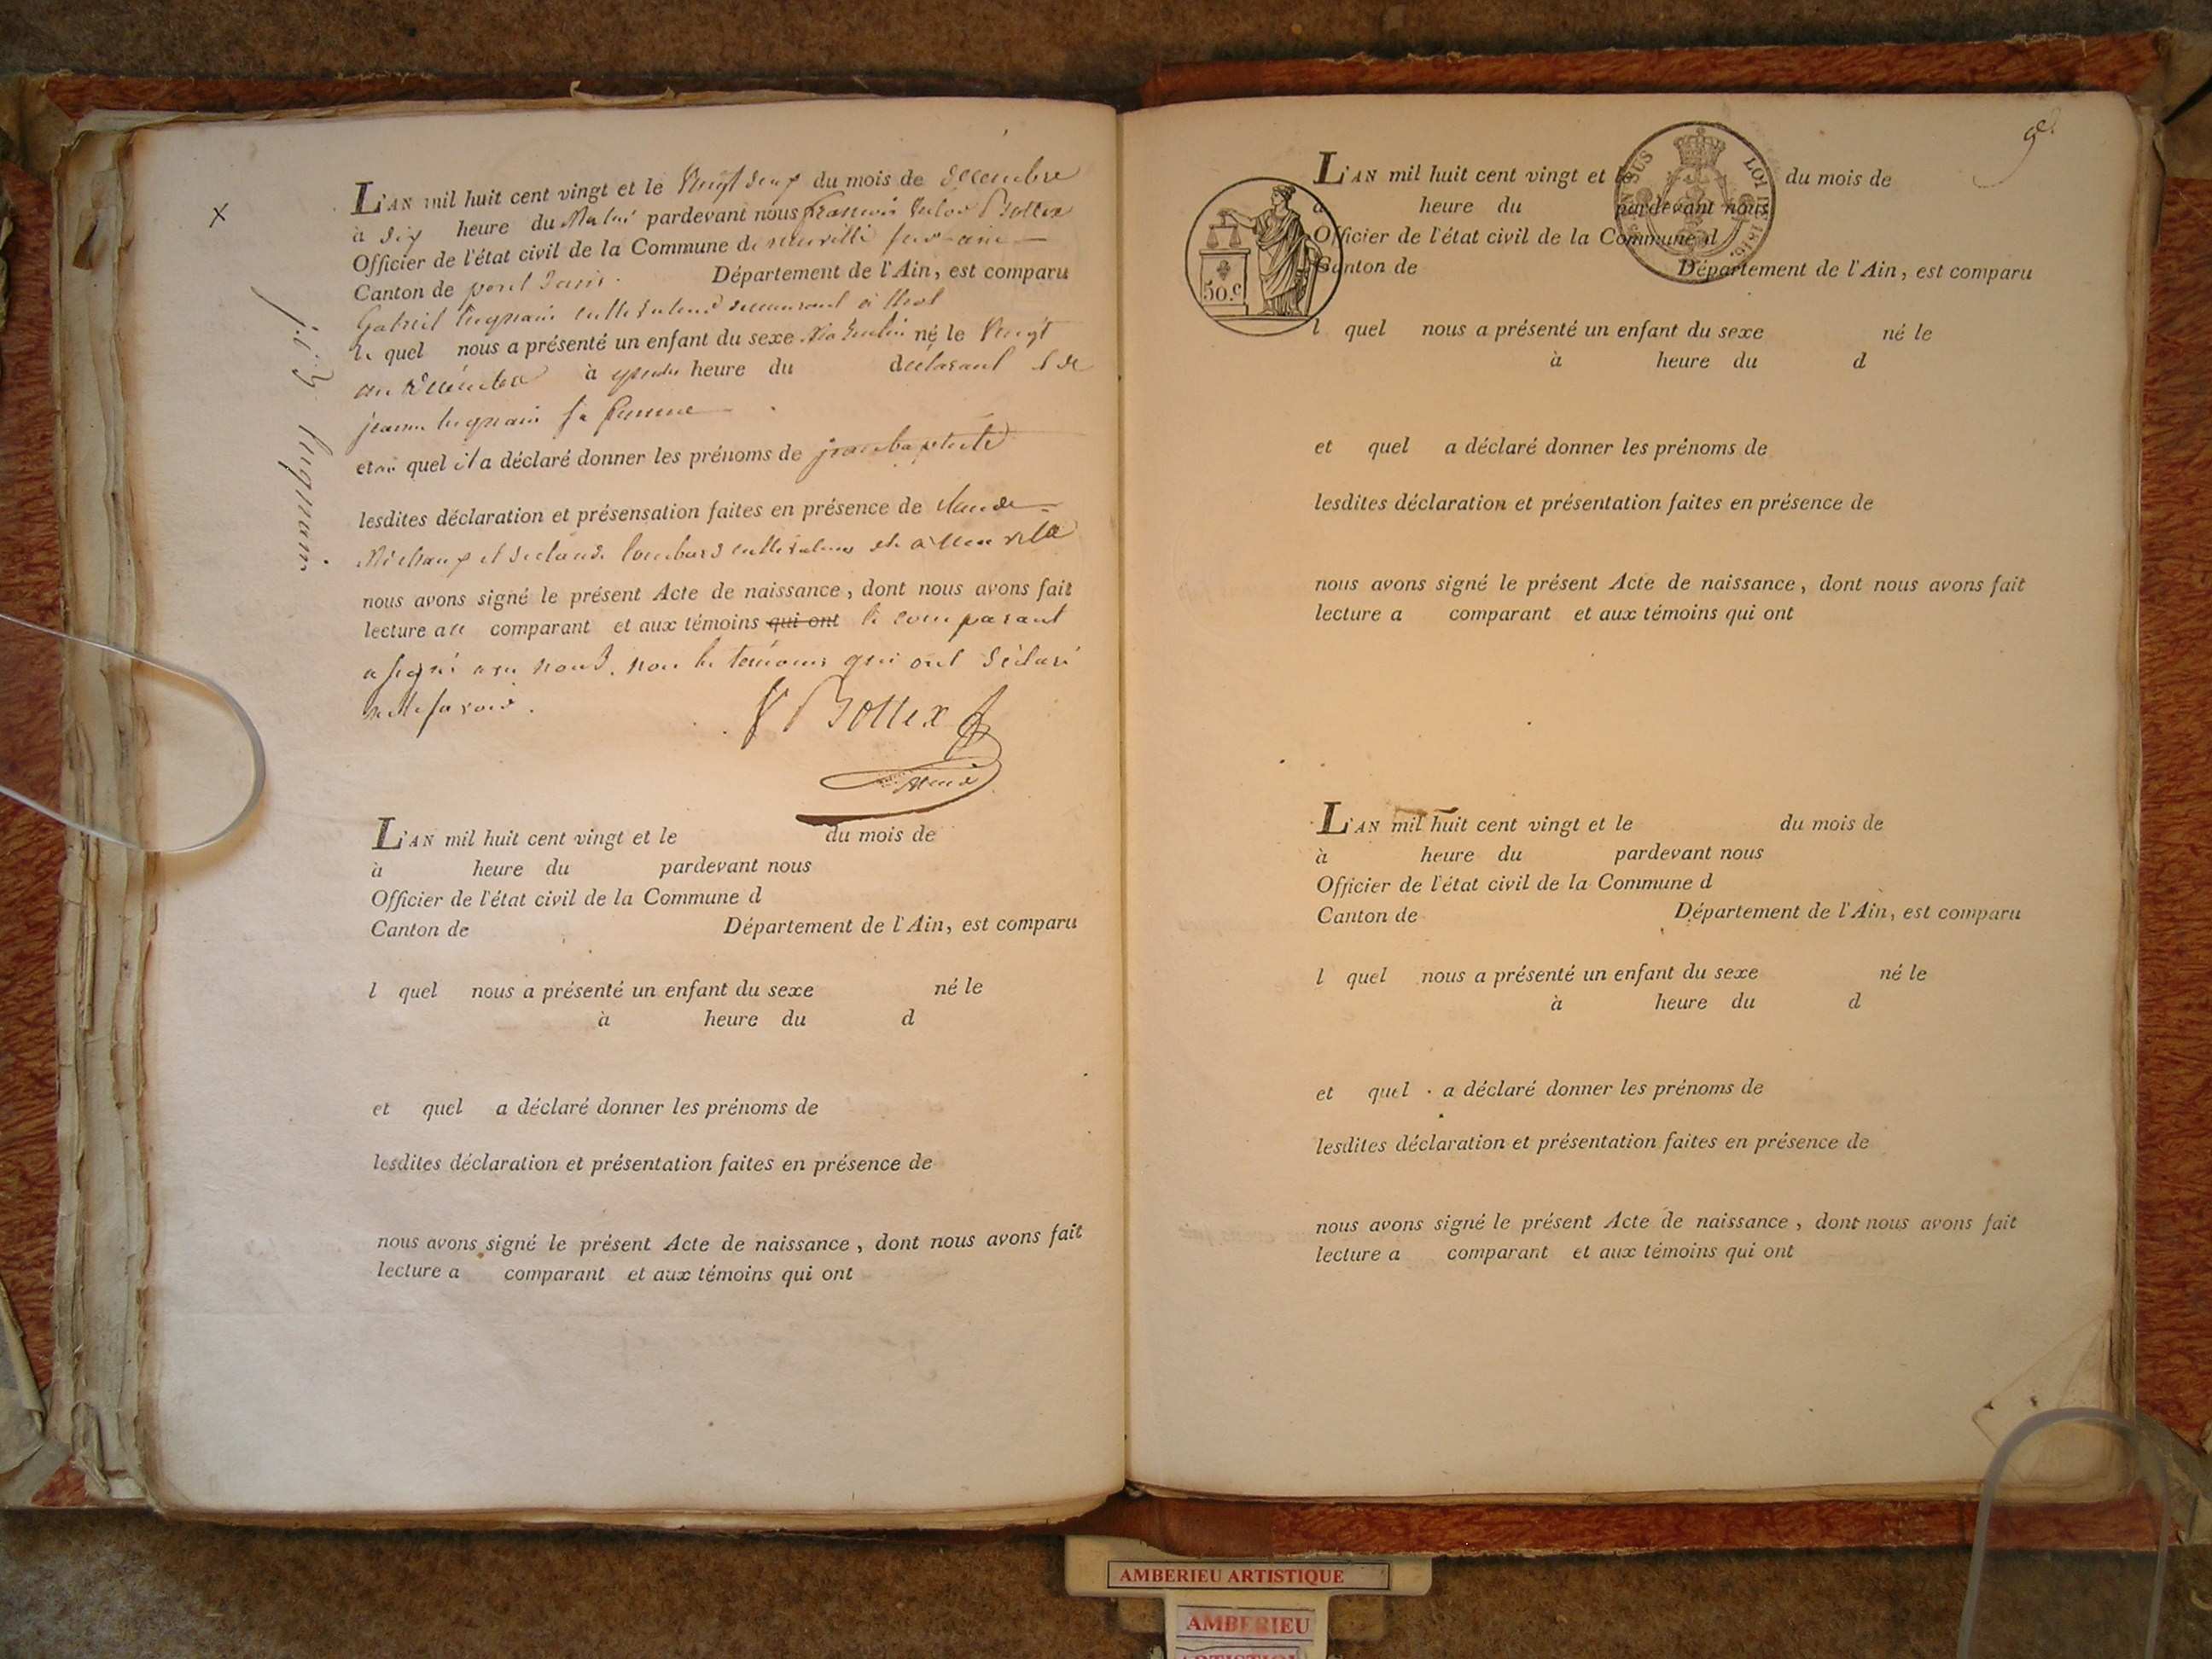 L'AN mil huit cent vingt et le Vingt deux du mois de decembre
à dix heure du Matin pardevant nous françois victor Bottex
Officier de l'état civil de la Commune de neuville sur-ain
Canton de pont Dain Département de l'Ain, est comparu
Gabriel cultivateur demeurant à
le quel nous a présenté un enfant du sexe Masculin né le Vingt
un Décembre à heure du déclarant de
jeanne sa femme
et au quel il a déclaré donner les prénoms de jean baptiste
lesdites déclaration et présensation faites en présence de claude
Michaux et de claude cultivateurs à neuville
nous avons signé le présent Acte de naissance, dont nous avons fait
lecture au comparant et aux témoins qui ont le comparant
a signé avec nous, non les temoins qui ont déclaré
ne le savoir.
V Bottex
L'AN mil huit cent vingt et le du mois de
à heure du pardevant nous
Officier de l'état civil de la Commune d
Canton de Département de l'Ain, est comparu
l quel nous a présenté un enfant du sexe né le
à heure du d
et quel a déclaré donner les prénoms de
lesdites déclaration et présentation faites en présence de
nous avons signé le présent Acte de naissance, dont nous avons fait
lecture a comparant et aux témoins qui ont
50.c
LOI 1816.
L'AN mil huit cent vingt et le du mois de
à heure du pardevant nous
Officier de l'état civil de la Commune d
Canton de Département de l'Ain, est comparu
l quel nous a présenté un enfant du sexe né le
à heure du d
et quel a déclaré donner les prénoms de
lesdites déclaration et présentation faites en présence de
nous avons signé le présent Acte de naissance, dont nous avons fait
lecture a comparant et aux témoins qui ont
L'AN mil huit cent vingt et le du mois de
à heure du pardevant nous
Officier de l'état civil de la Commune d
Canton de Département de l'Ain, est comparu
l quel nous a présenté un enfant du sexe né le
à heure du d
et quel a déclaré donner les prénoms de
lesdites déclaration et présentation faites en présence de
nous avons signé le présent Acte de naissance, dont nous avons fait
lecture a comparant et aux témoins qui ont
AMBERIEU ARTISTIQUE
AMBERIEU